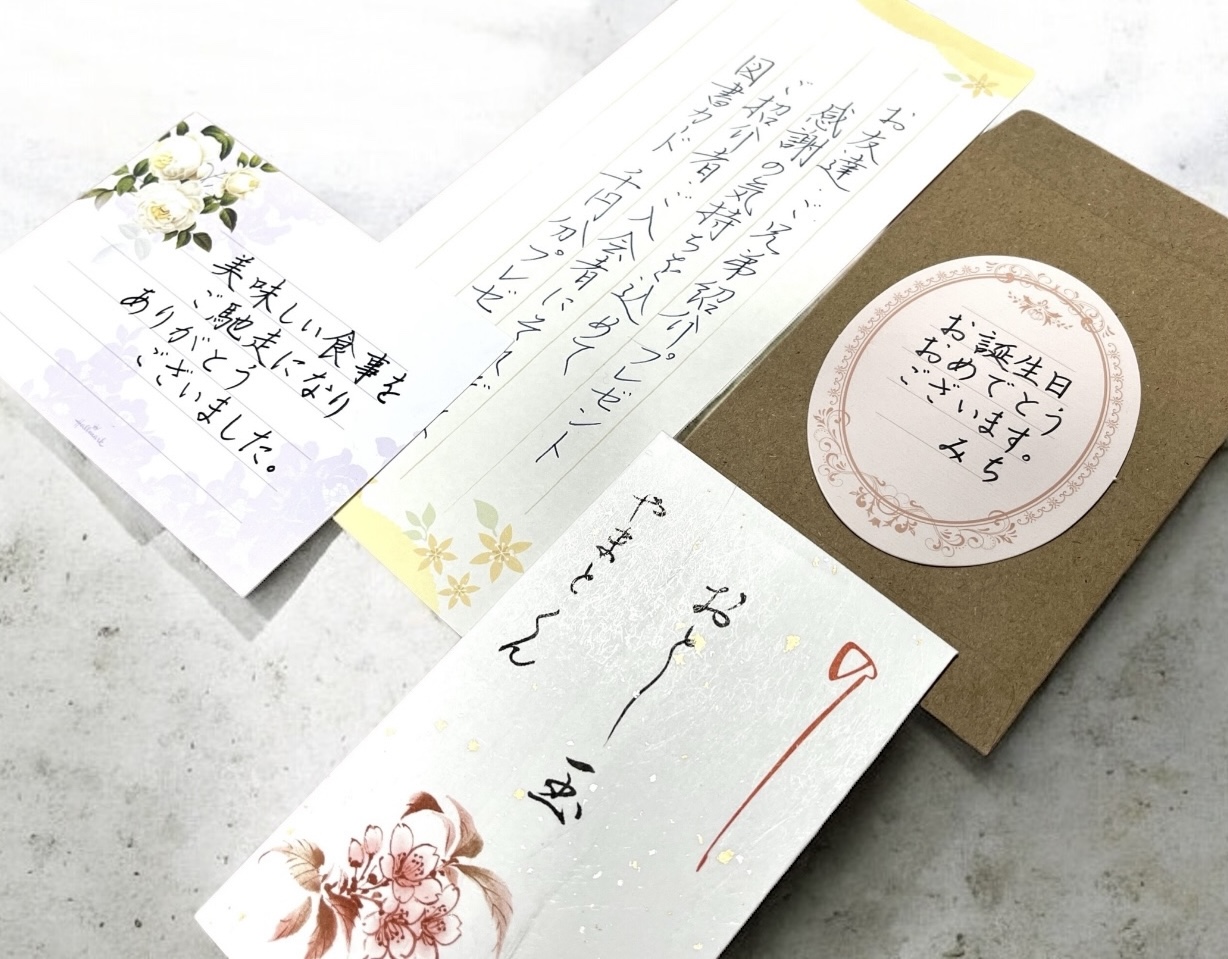 美味しい食事を
ご馳走になり
ありがとう
ございました。
お友達・ご兄弟紹介プレゼント
感謝の気持ちを込めて
ご紹介者・ご入会者にそれぞ
図書カード 千円分プレゼ
お誕生日
おめでとう
ございます。
みち
おとし玉
やまとくん